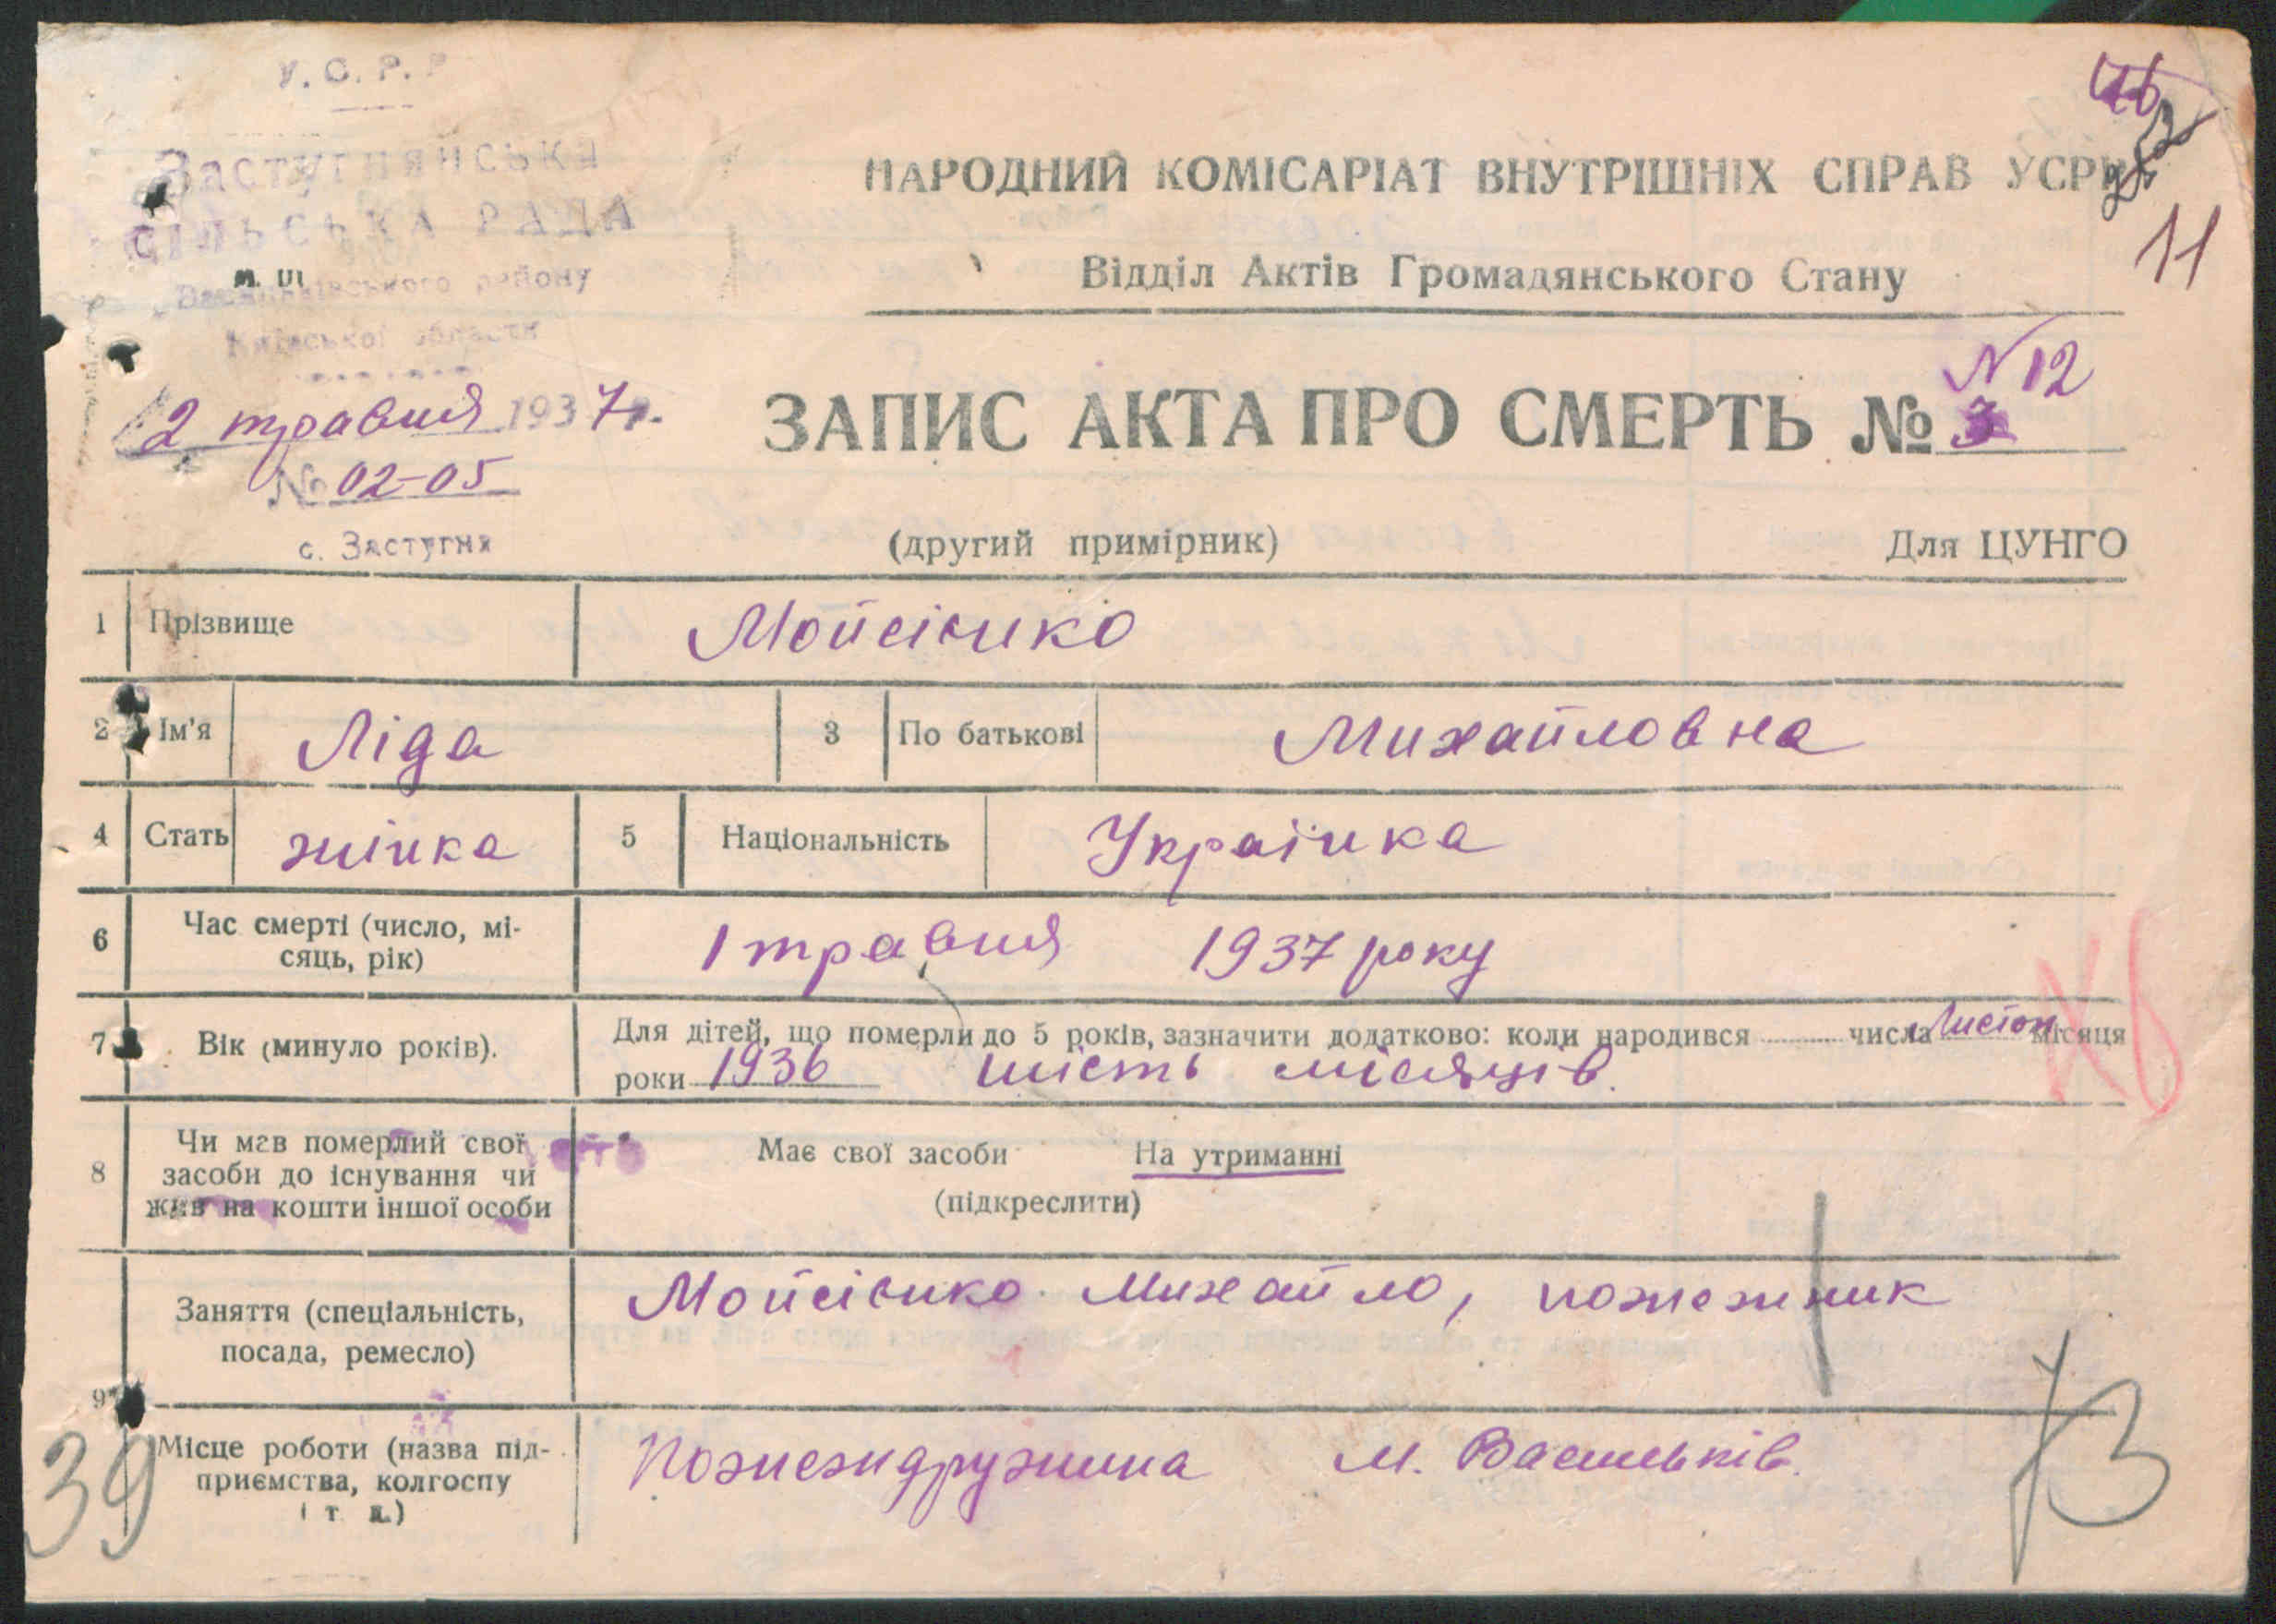 У.С.Р.Р
Застугнянська
СІЛЬСЬКА РАДА
Васильківського району
Київської области
2 травня 1937 р.
№ 02-05
с. Застугня
16
11
НАРОДНИЙ КОМІСАРІАТ ВНУТРІШНІХ СПРАВ УСРР
Відділ Актів Громадянського Стану
N 12
ЗАПИС АКТА ПРО СМЕРТЬ № 3
(другий примірник)
Для ЦУНГО
1 Прізвище Мойсієнко
2 Ім'я Ліда 3 По батькові Михайловна
4 Стать жінка 5 Національність Українка
6 Час смерті (число, мі-
сяць, рік) 1 травня 1937 року
7 Вік (минуло років). Для дітей, що померли до 5 років, зазначити додатково: коли народився числа Листоп. місяця
роки 1936 шість місяців.
8 Чи мав померлий свої
засоби до існування чи
жив на кошти іншої особи
Має свої засоби На утриманні
(підкреслити)
9 Заняття (спеціальність,
посада, ремесло) Мойсієнко Михайло, пожежник
Місце роботи (назва під-
приємства, колгоспу
і т. д.) Пожеждружина м. Васильків.
39